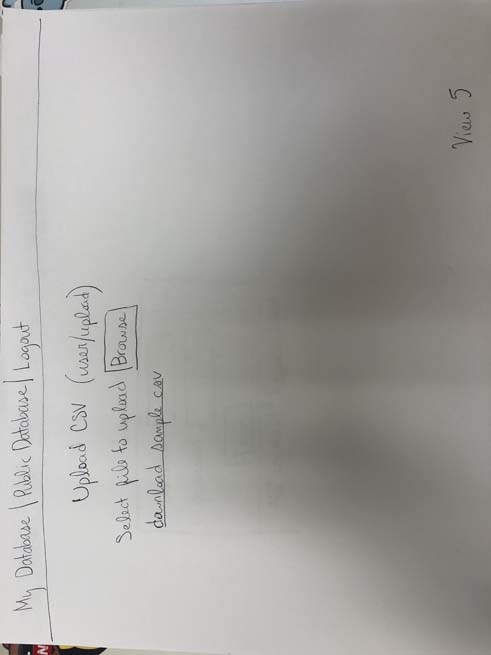 My Database | Public Database | Logout
Upload CSV (user/upload)
Select file to upload Browse
download sample csv
View 5